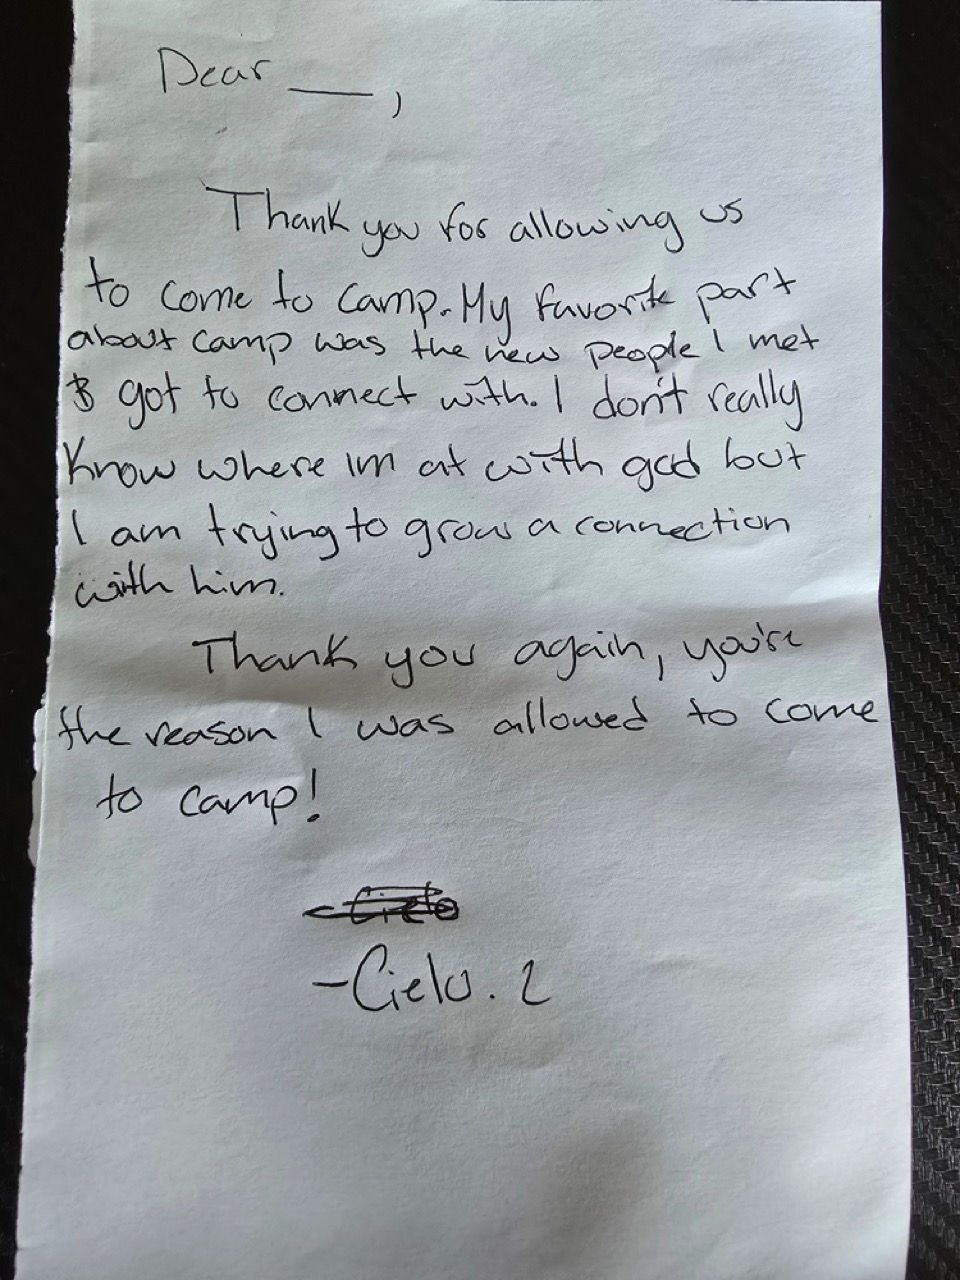 Dear ___,
Thank you for allowing us
to come to camp. My favorite part
about camp was the new people I met
& got to connect with. I don't really
know where im at with god but
I am trying to grow a connection
with him.
Thank you again, you're
the reason I was allowed to come
to camp!
-Cielo
-Cielo. L